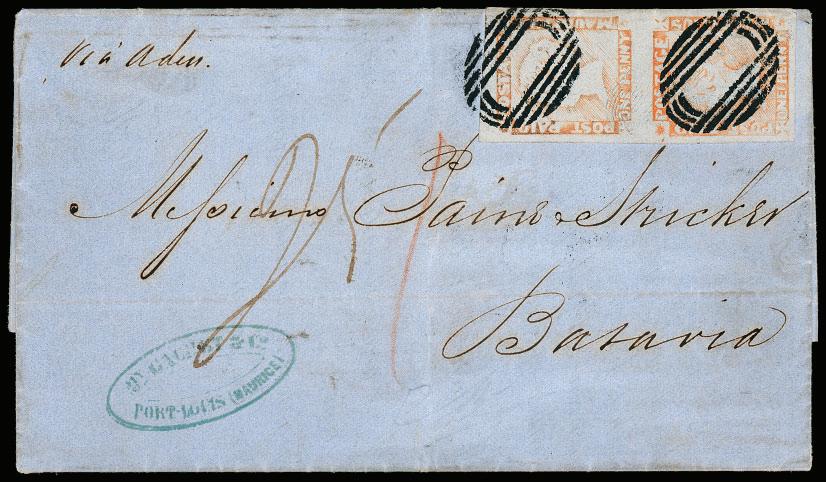 via Aden.
POST PAID
ONE PENNY
POSTAGE
25
Messieurs Paine & Stricker
Batavia
& Co
PORT-LOUIS (MAURICE)